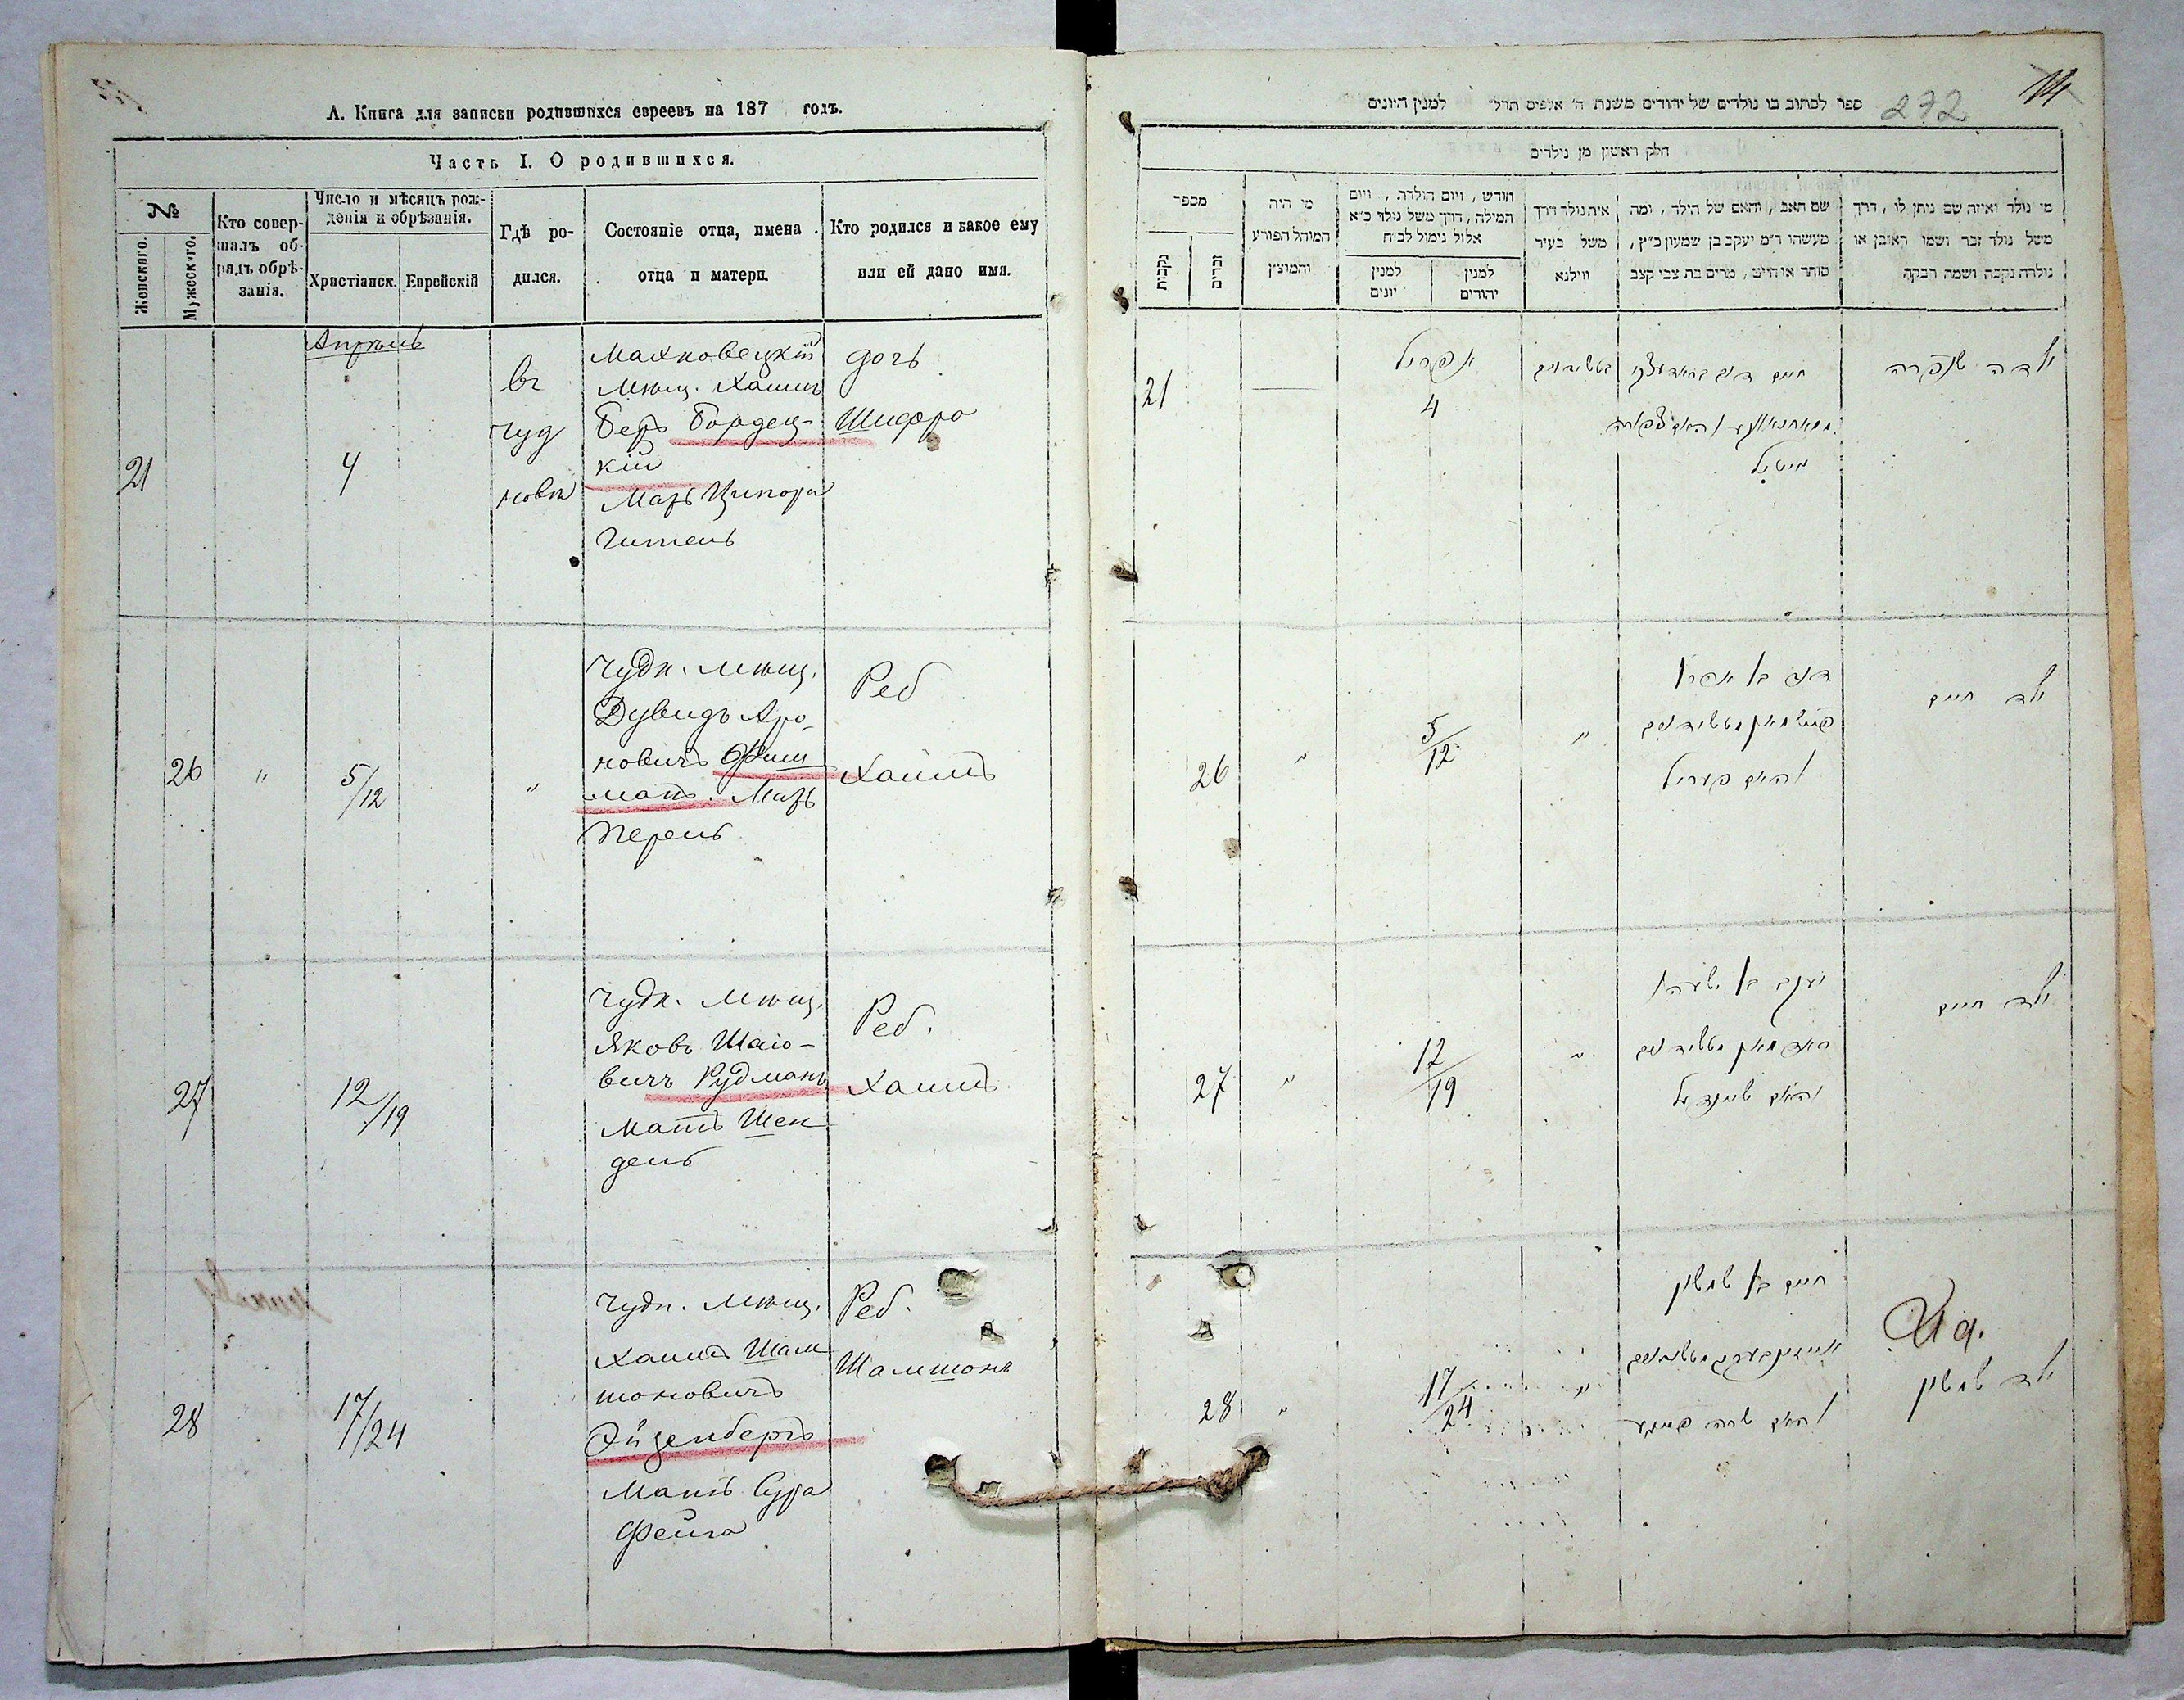 А. Книга для записки родившихся евреевъ на 187 годъ.
Часть I. О родившихся.
№
Женскаго.
Мужескаго.
Кто совер-
шалъ об-
рядъ обрѣ-
занія.
Число и мѣсяцъ рож-
денія и обрѣзанія.
Христіанск.
Еврейскій
Гдѣ ро-
дился.
Состояніе отца, имена
отца и матери.
Кто родился и какое ему
или ей дано имя.
Апрѣль
21
4
въ
Чуд
новѣ
Махновецкій
мѣщ. Хаимъ
Беръ Бордец-
кій
Мать Ципора
Гитель
дочь
Шифра
26
"
5/12
"
Чудн. мѣщ.
Дувидъ Аро-
новичъ Фиш
манъ. Мать
Перель
Реб
Хаимъ
27
12/19
Чудн. мѣщ.
Яковъ Шаіо-
вичъ Рудманъ
Мать Шен
дель
Реб.
Хаимъ
28
17/24
Чудн. мѣщ.
Хаимъ Шам
шоновичъ
Эйзенбергъ
Мать Сура
Фейга
Реб.
Шамшонъ
14
272
ספר לכתוב בו נולדים של יהודים משנת ה' אלפים תרל" למנין היונים
חלק ראשון מן נולדים
מספר
נקבות
זכרים
מי היה
המוהל הפורע
והמוצץ
חודש, ויום הולדת, ויום
המילה, דרך משל נולד כ"א
אלול נימול לכ"ח
למנין
יונים
למנין
יהודים
איה נולד דרך
משל בעיר
ווילנא
שם האב, והאם של הילד, ומה
מעשהו ר"מ יעקב בן שמעון כ"ץ,
סוחר או חייט, מרים בת צבי קצב
מי נולד ואיזה שם ניתן לו, דרך
משל נולד זכר ושמו ראובן או
נולדה נקבה ושמה רבקה
21
אפריל
4
חיים
ילדה שפרה
26
"
5/12
"
דוד בן אהרן
והאם פעריל
ילד חיים
27
"
12/19
"
יעקב בן ישעיה
והאם שיינדיל
ילד חיים
28
"
17/24
"
חיים בן שמשון
והאם שרה פייגע
ילד שמשון